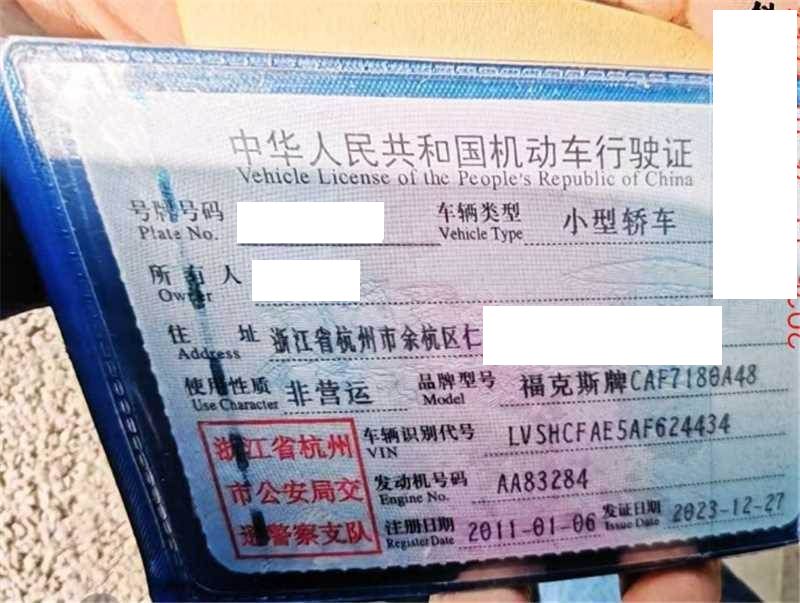 中华人民共和国机动车行驶证
Vehicle License of the People's Republic of China
号牌号码
Plate No.
车辆类型 小型轿车
Vehicle Type
所有人
Owner
住址 浙江省杭州市余杭区仁
Address
使用性质 非营运
Use Character
品牌型号 福克斯牌CAF7180A48
Model
车辆识别代号 LVSHCFAE5AF624434
VIN
发动机号码 AA83284
Engine No.
注册日期 2011-01-06
Register Date
发证日期 2023-12-27
Issue Date
浙江省杭州
市公安局交
通警察支队